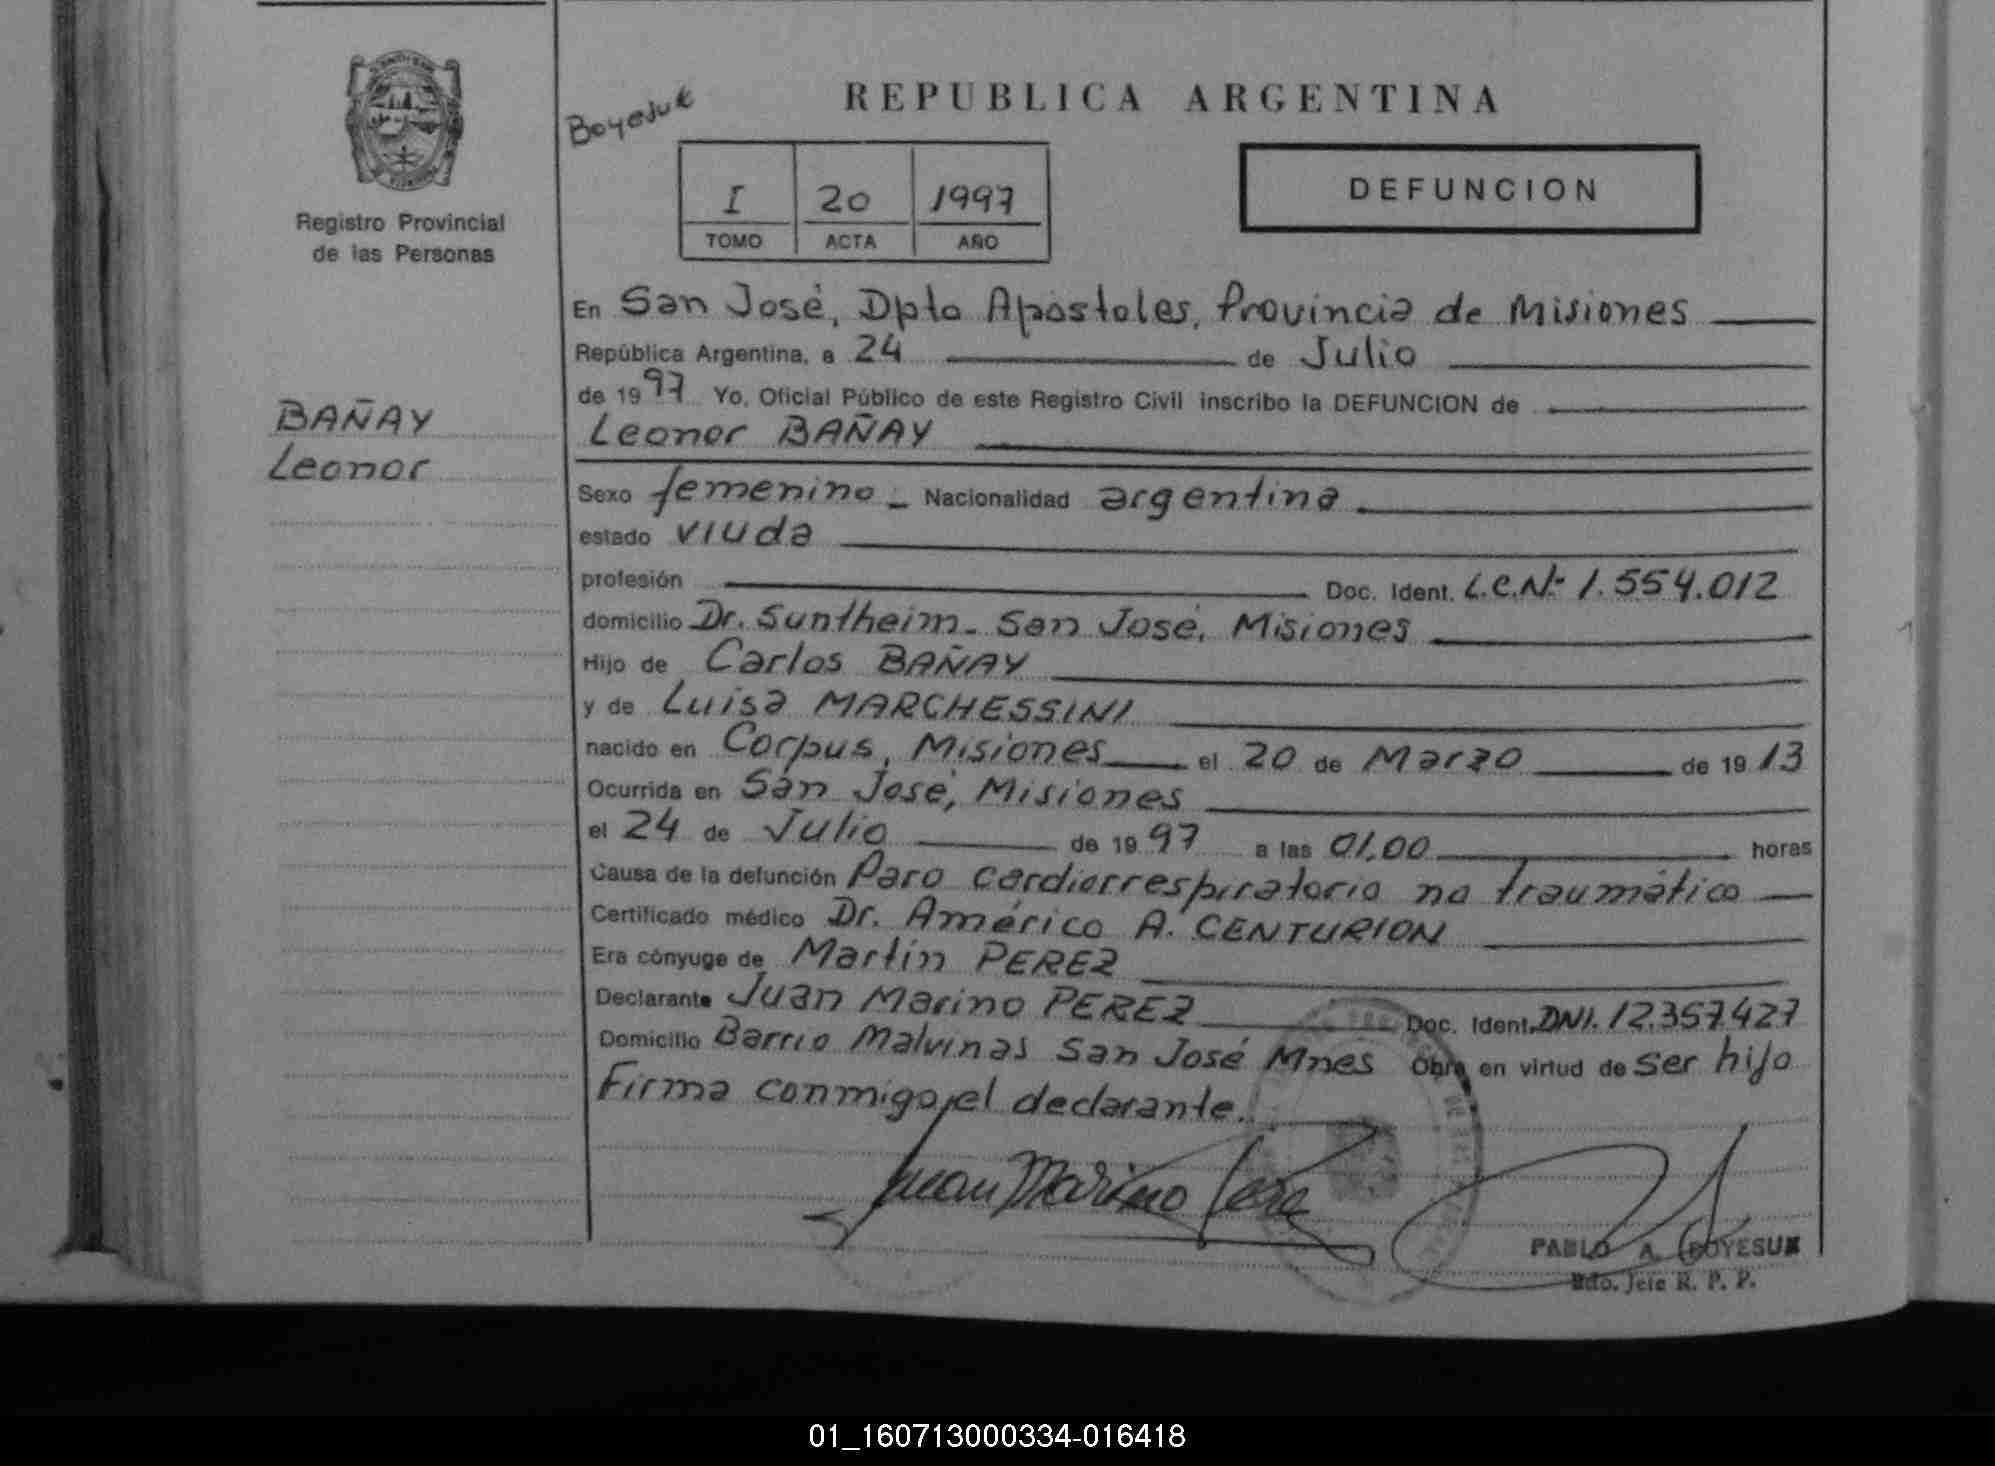 Registro Provincial
de las Personas
BAÑAY
Leonor
Boyesuk
REPUBLICA ARGENTINA
I 20 1997
TOMO ACTA AÑO
DEFUNCION
En San José, Dpto Apostoles, Provincia de Misiones
República Argentina, a 24 de Julio
de 1997 Yo, Oficial Público de este Registro Civil inscribo la DEFUNCION de
Leonor BAÑAY
Sexo femenino - Nacionalidad argentina
estado viuda
profesión Doc. Ident. L.C.Nº 1.554.012
domicilio Dr. Suntheim - San José, Misiones
Hijo de Carlos BAÑAY
y de Luisa MARCHESSINI
nacido en Corpus, Misiones el 20 de Marzo de 1913
Ocurrida en San José, Misiones
el 24 de Julio de 1997 a las 01,00 horas
Causa de la defunción Paro cardiorrespiratorio no traumático
Certificado médico Dr. Américo A. CENTURION
Era cónyuge de Martín PEREZ
Declarante Juan Marino PEREZ Doc. Ident. DNI. 12.357427
Domicilio Barrio Malvinas San José Mnes Obra en virtud de ser hijo
Firma conmigo, el declarante.
Juan Marino Pere
PABLO A. BOYESUK
Jefe R. P. P.
01_160713000334-016418